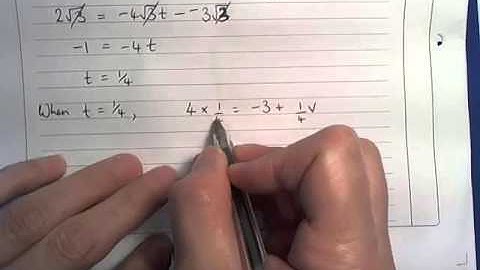 2√3 = -4√3t - -3√3
-1 = -4t
t = 1/4
When t = 1/4, 4 × 1/ = -3 + 1/4 v